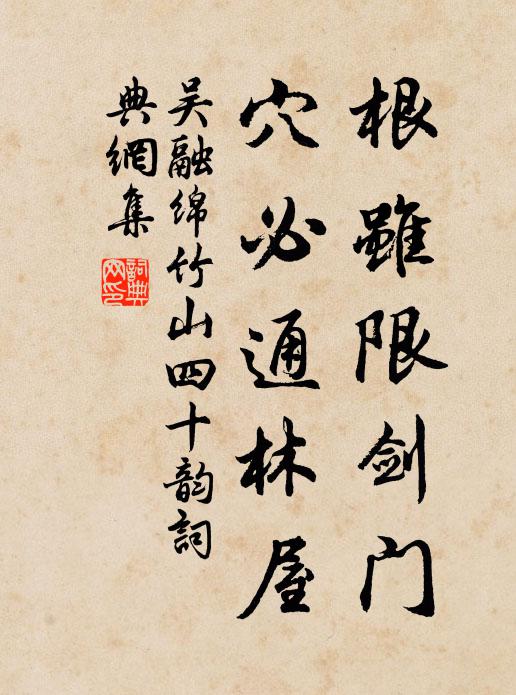 根雖限剑门
穴必通林屋
吴融绵竹山四十韵詞
典網集
詞典
网印